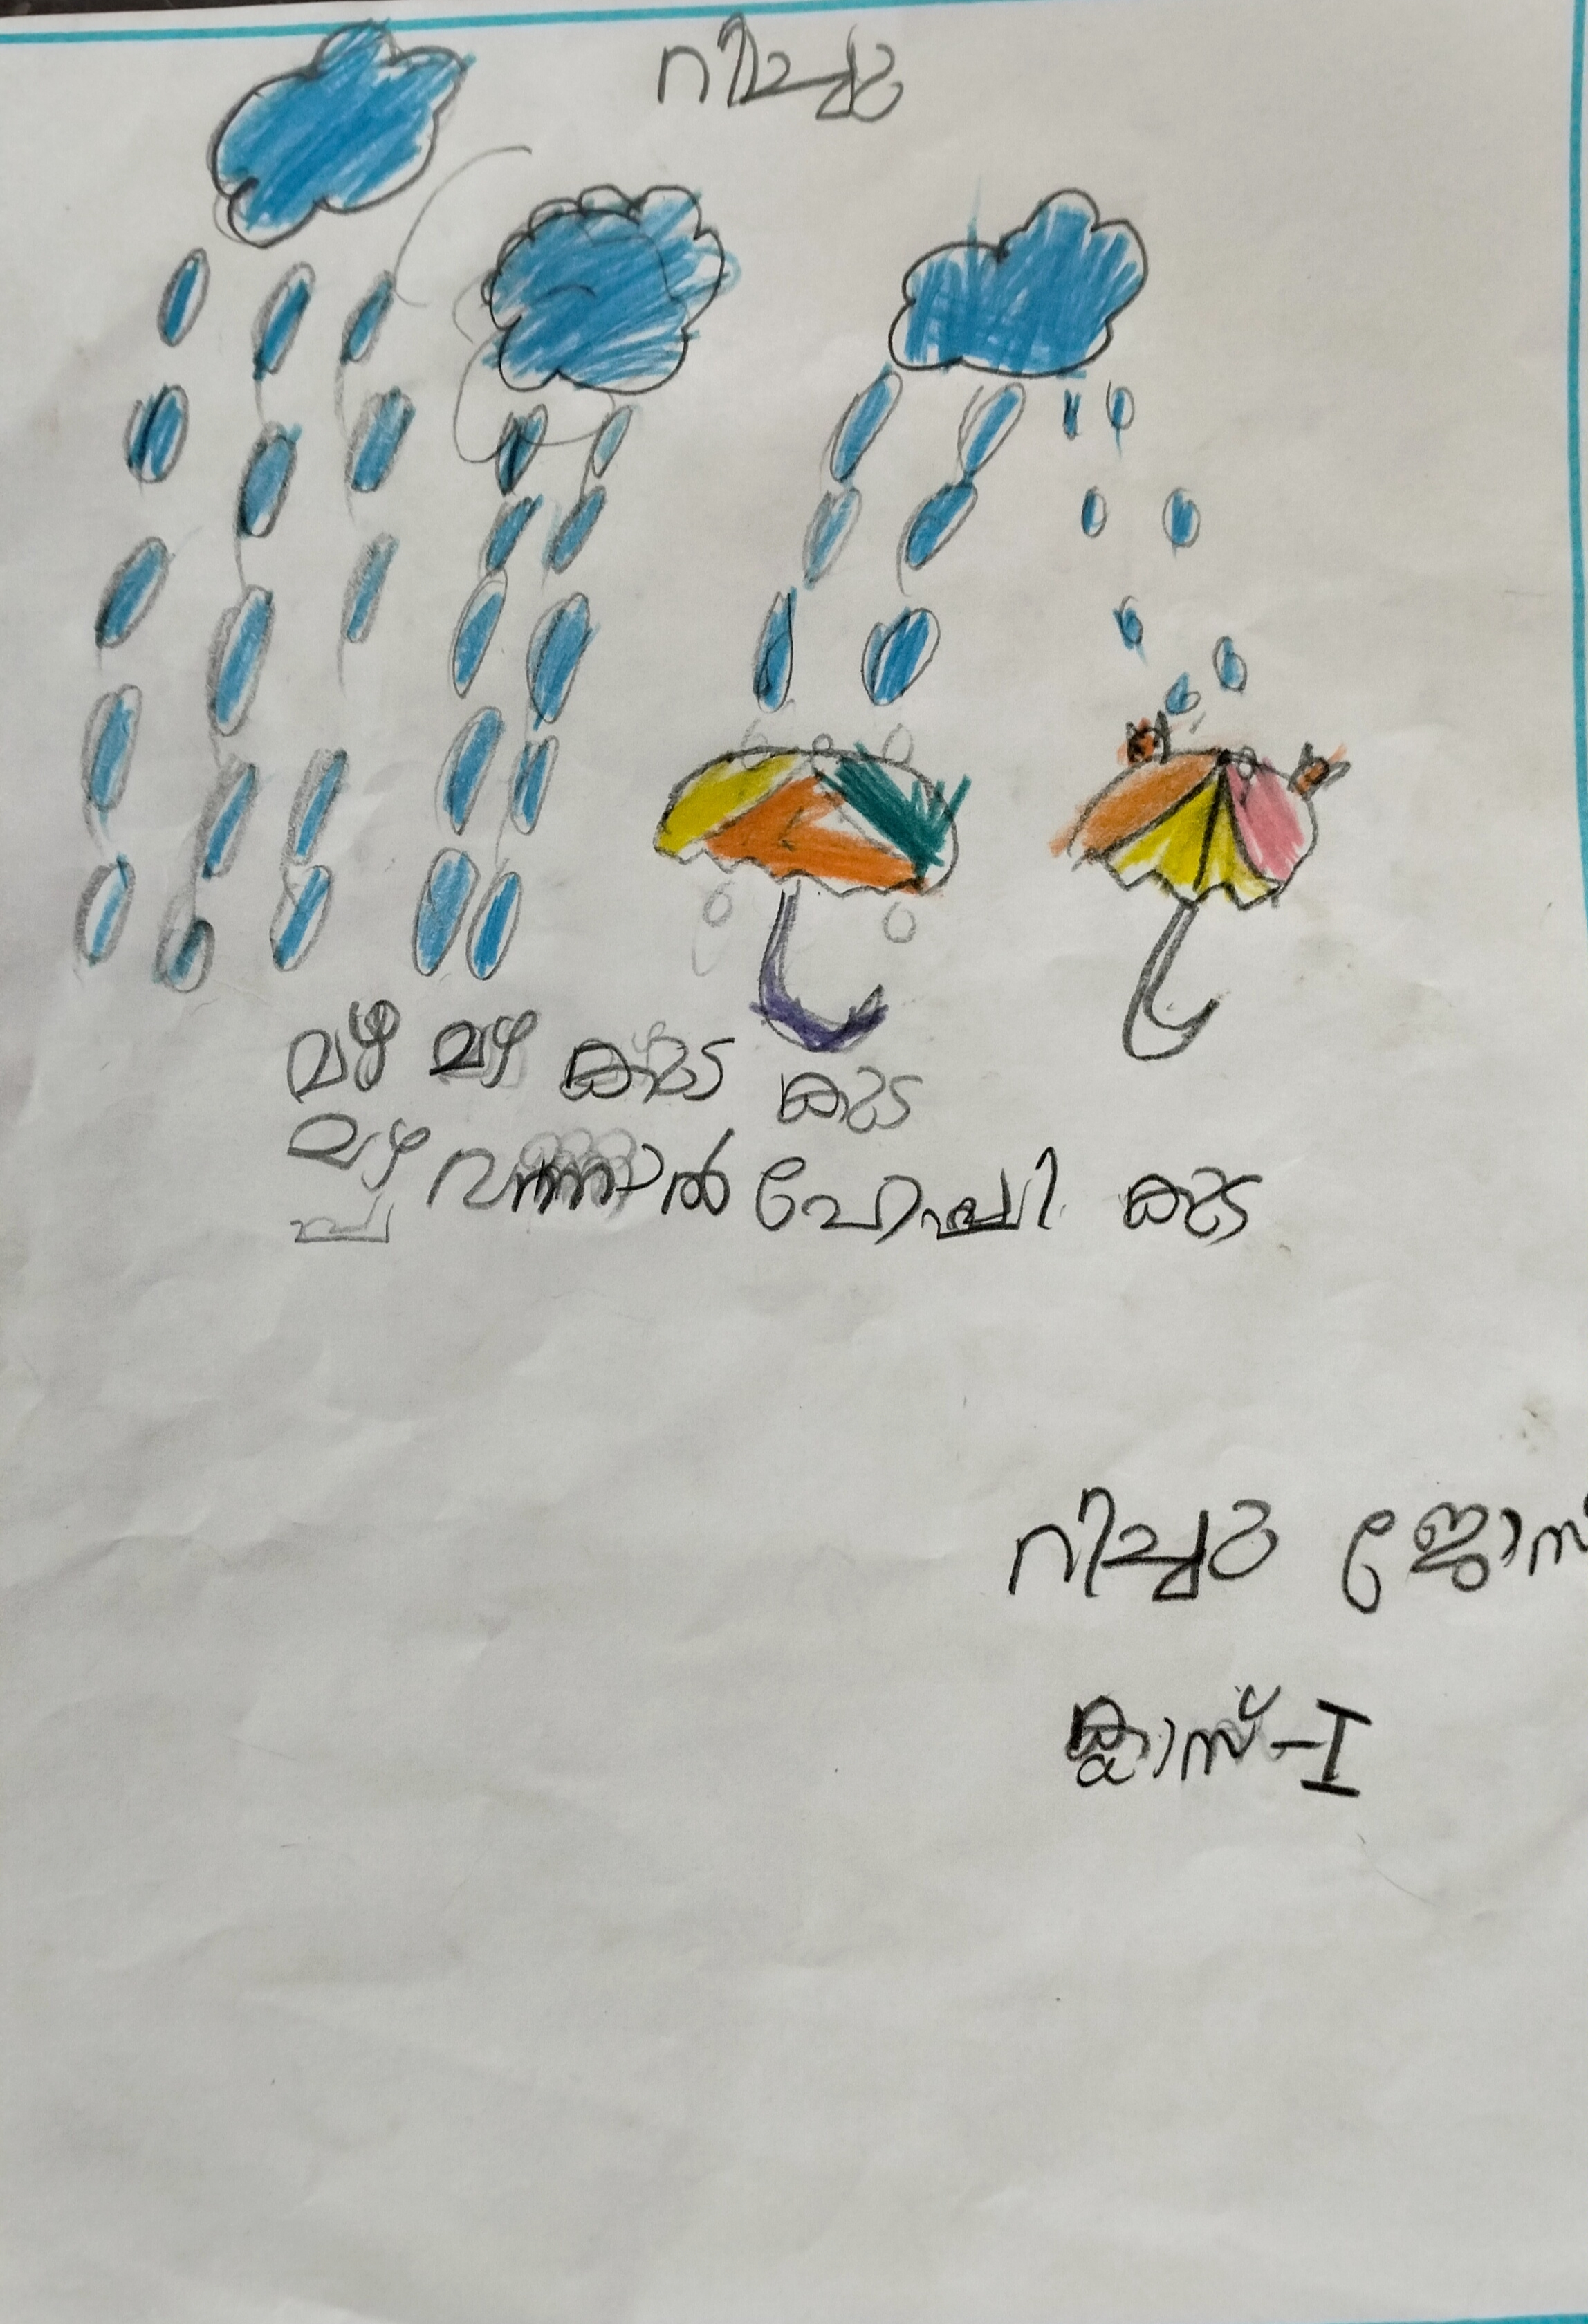 റിച്ചു
മഴ മഴ കുട കുട
മഴ വന്നാൽ പോപ്പി കുട
റിച്ചു ജോസ്
ക്ലാസ്-I